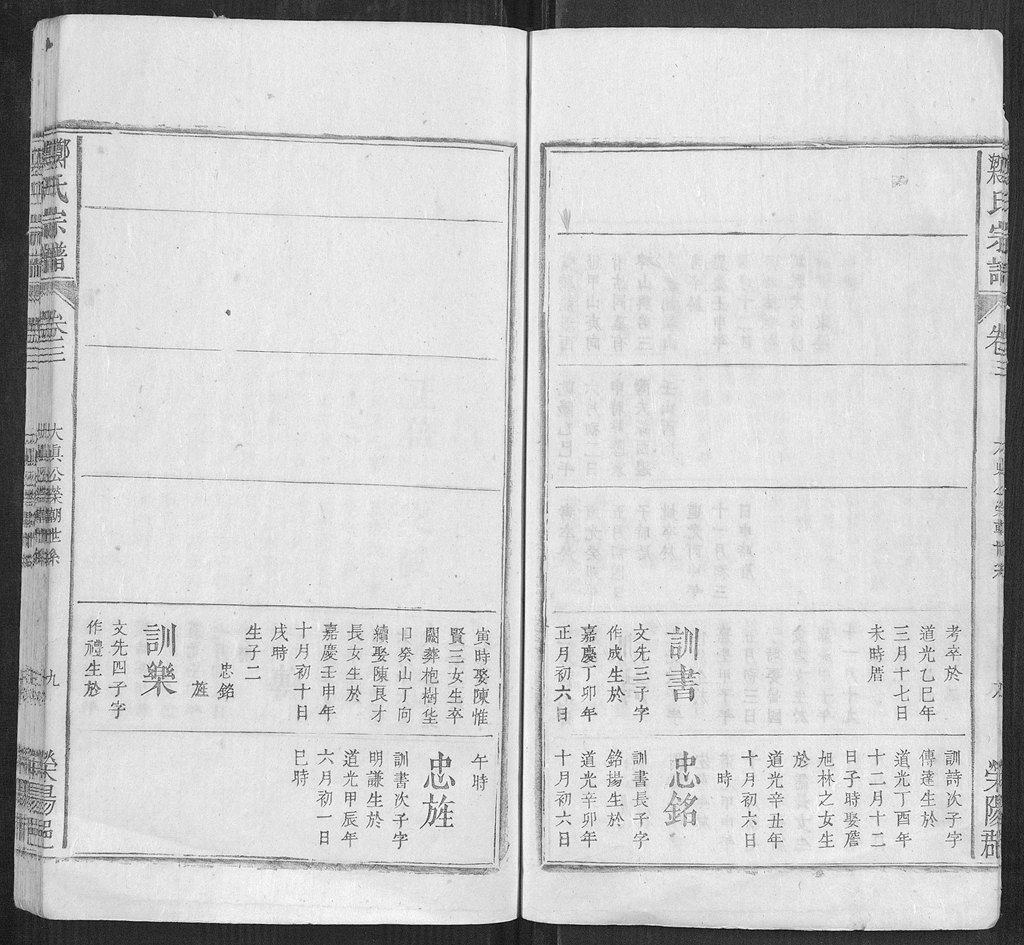 鄭氏宗譜
卷三
滎陽郡
考卒於
道光乙巳年
三月十七日
未時厝
訓書
文先三子字
作成生於
嘉慶丁卯年
正月初六日
訓詩次子字
傳達生於
道光丁酉年
十二月十二
日子時娶詹
旭林之女生
於
道光辛丑年
十月初六日
時
忠銘
訓書長子字
銘揚生於
道光辛卯年
十月初六日
寅時娶陳惟
賢三女生卒
闕葬枹樹垡
日癸山丁向
續娶陳良才
長女生於
嘉慶壬申年
十月初十日
戌時
生子二
忠銘
旌
訓樂
文先四子字
作禮生於
午時
忠旌
訓書次子字
明謙生於
道光甲辰年
六月初一日
巳時
鄭氏宗譜
卷三
大眞公榮朝世系
九